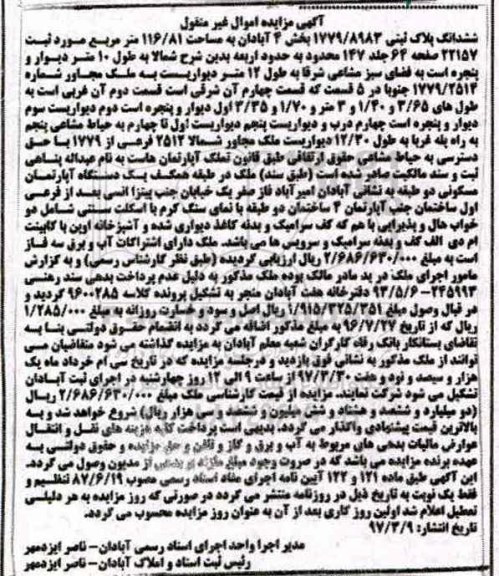 آگهی مزایده اموال غیر منقول
ششدانگ پلاک ثبتی ۱۷۷۹/۸۹۸۳ بخش ۴ آبادان به مساحت ۱۱۶/۸۱ متر مربع مورد ثبت
۲۲۱۵۷ صفحه ۶۴ جلد ۱۴۷ محدود به حدود اربعه بدین شرح شمالا به طول ۱۰ متر دیوار و
پنجره است به فضای سبز مشاعی شرقا به طول ۱۲ متر دیواریست به ملک مجاور شماره
۱۷۷۹/۲۵۱۳ جنوبا در ۵ قسمت که قسمت چهارم آن شرقی است قسمت دوم آن غربی است به
طول های ۳/۶۵ و ۱/۴۰ و ۳ متر و ۱/۷۰ و ۳/۳۵ اول دیوار و پنجره است دوم دیواریست سوم
دیوار و پنجره است چهارم درب و دیواریست پنجم دیواریست اول تا چهارم به حیاط مشاعی پنجم
به راه پله غربا به طول ۱۲/۳۰ دیواریست ملک مجاور شمالا ۲۵۱۲ فرعی از ۱۷۷۹ با حق
دسترسی به حیاط مشاعی حقوق ارتفاقی طبق قانون تملک آپارتمان هاست به نام عبداله پناهی
ثبت و سند مالکیت صادر شده است (طبق سند) ملک در طبقه همکف یک دستگاه آپارتمان
مسکونی دو طبقه به نشانی آبادان امیرآباد فاز صفر یک خیابان جنب پیتزا انسی بعد از فرعی
اول ساختمان جنب آپارتمان ۴ ساختمان دو طبقه با نمای سنگ کرم با اسکلت سنتی شامل دو
خواب هال و پذیرایی با هم که کف سرامیک و بدنه کاغذ دیواری شده و آشپزخانه اوپن با کابینت
ام دی الف کف و بدنه سرامیک و سرویس ها می باشد. ملک دارای اشتراکات آب و برق سه فاز
است به مبلغ ۲/۶۸۶/۶۳۰/۰۰۰ ریال ارزیابی گردیده (طبق نظر کارشناس رسمی) و به گزارش
مامور اجرای ملک در ید مادر مالک بوده ملک مذکور به دلیل عدم پرداخت بدهی سند رهنی
۲۴۵۹۹۳-۹۳/۵/۶ دفترخانه هفت آبادان منجر به تشکیل پرونده کلاسه ۹۶۰۰۲۸۵ گردید و
در قبال وصول مبلغ ۱/۹۱۵/۳۲۵/۳۵۱ ریال اصل و سود و خسارت روزانه به مبلغ ۱/۲۸۵/۰۰۰
ریال که از تاریخ ۹۶/۷/۲۷ به مبلغ مذکور اضافه می گردد به انضمام حقوق دولتی بنا به
تقاضای بستانکار بانک رفاه کارگران شعبه معلم آبادان به مزایده گذاشته می شود متقاضیان می
توانند از ملک مذکور به نشانی فوق بازدید و درجلسه مزایده که در تاریخ سی ام خرداد ماه یک
هزار و سیصد و نود و هفت ۹۷/۳/۳۰ از ساعت ۹ الی ۱۲ روز چهارشنبه در اجرای ثبت آبادان
تشکیل می شود شرکت نمایند. مزایده از قیمت کارشناسی ملک مبلغ ۲/۶۸۶/۶۳۰/۰۰۰ ریال
(دو میلیارد و ششصد و هشتاد و شش میلیون و ششصد و سی هزار ریال) شروع خواهد شد و به
بالاترین قیمت پیشنهادی واگذار می گردد. بدیهی است پرداخت کلیه هزینه های نقل و انتقال
عوارض مالیات بدهی های مربوط به آب و برق و گاز و تلفن و حق مزایده و حقوق دولتی به
عهده برنده مزایده می باشد که در صورت وجود مبلغ مازند بر بدهی از مدیون وصول می گردد.
این آگهی طبق ماده ۱۲۱ و ۱۲۲ آیین نامه اجرای مفاد اسناد رسمی مصوب ۸۷/۶/۱۹ تنظیم و
فقط یک نوبت به تاریخ ذیل در روزنامه منتشر می گردد در صورتی که روز مزایده به هر دلیلی
تعطیل اعلام شد اولین روز کاری بعد از آن به عنوان روز مزایده محسوب می گردد.
تاریخ انتشار: ۹۷/۳/۹
مدیر اجرا واحد اجرای اسناد رسمی آبادان- ناصر ایزدمهر
رئیس ثبت اسناد و املاک آبادان- ناصر ایزدمهر